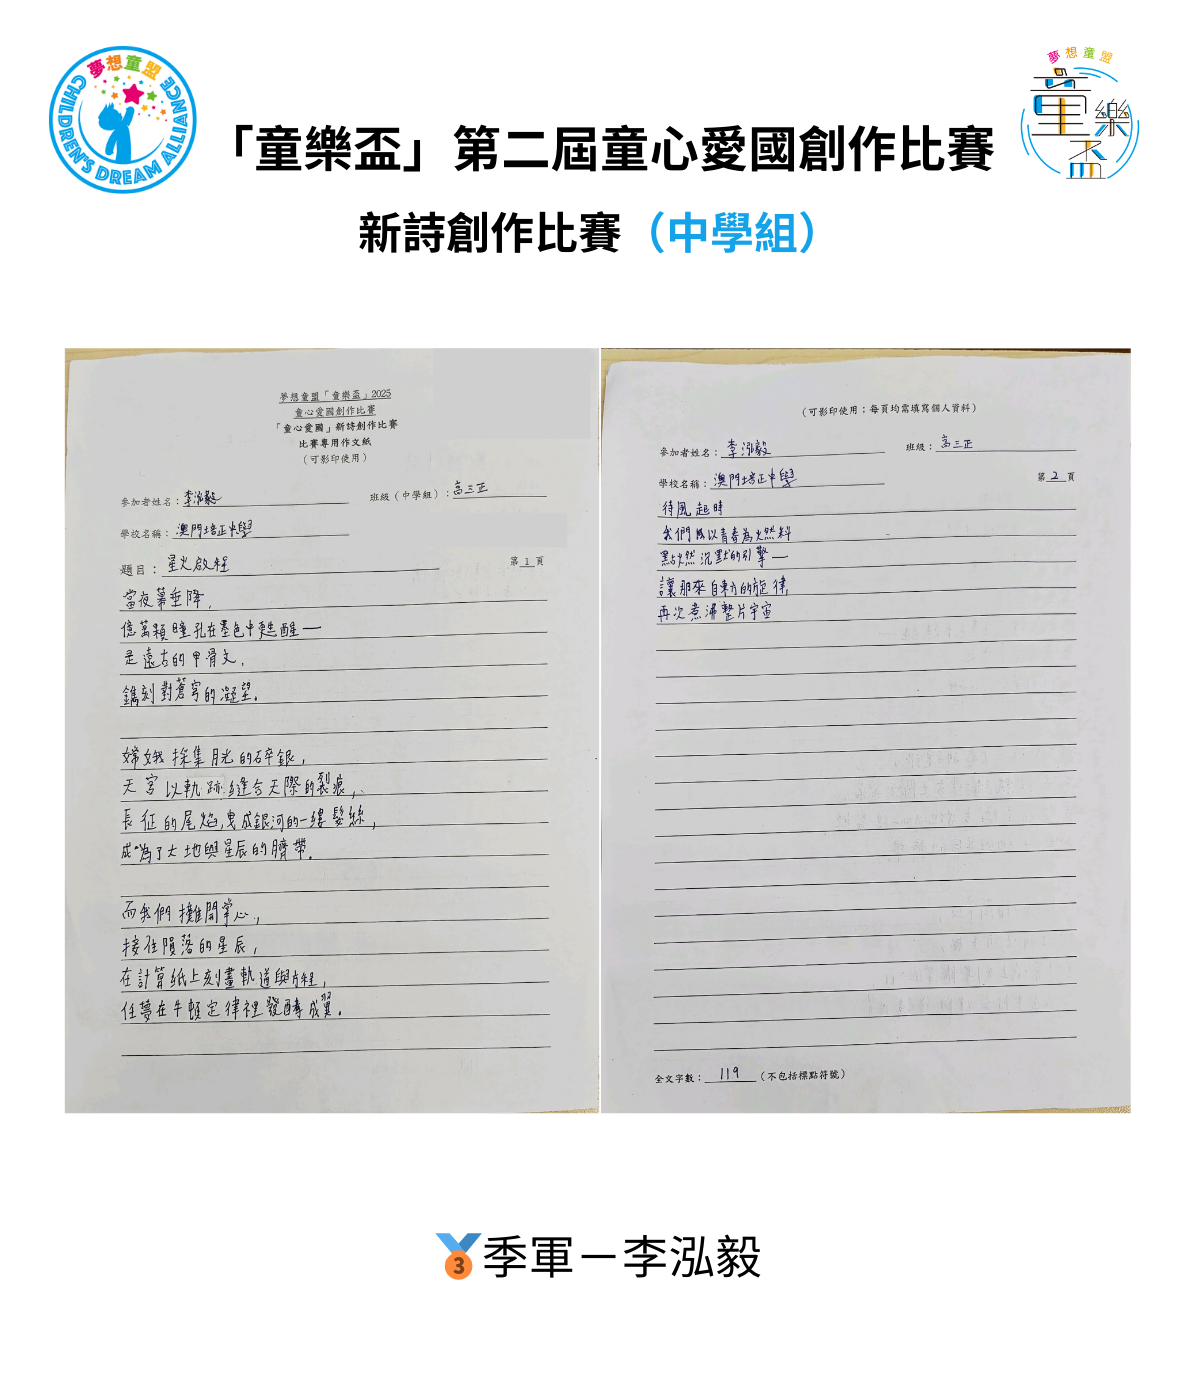 夢想童盟
CHILDREN'S DREAM ALLIANCE
夢想童盟
童樂盃
「童樂盃」第二屆童心愛國創作比賽
新詩創作比賽（中學組）
夢想童盟「童樂盃」2025
童心愛國創作比賽
「童心愛國」新詩創作比賽
比賽專用作文紙
（可影印使用）
參加者姓名：李泓毅 班級（中學組）：高三正
學校名稱：澳門培正中學
題目：星火啟程 第1頁
當夜幕垂降，
億萬顆瞳孔在墨色中甦醒—
是遠古的甲骨文，
鐫刻對蒼穹的凝望。
嫦娥採集月光的碎銀，
天宮以軌跡縫合天際的裂痕，
長征的尾焰，曳成銀河的一縷髮絲，
成為了大地與星辰的臍帶。
而我們攤開掌心，
接住隕落的星辰，
在計算紙上刻畫軌道與方程，
任夢在牛頓定律裡發酵成翼。
（可影印使用；每頁均需填寫個人資料）
參加者姓名：李泓毅 班級：高三正
學校名稱：澳門培正中學 第2頁
待風起時
我們將以青春為燃料
點燃沉默的引擎—
讓那來自東方的旋律，
再次煮沸整片宇宙
全文字數：119（不包括標點符號）
3
季軍－李泓毅